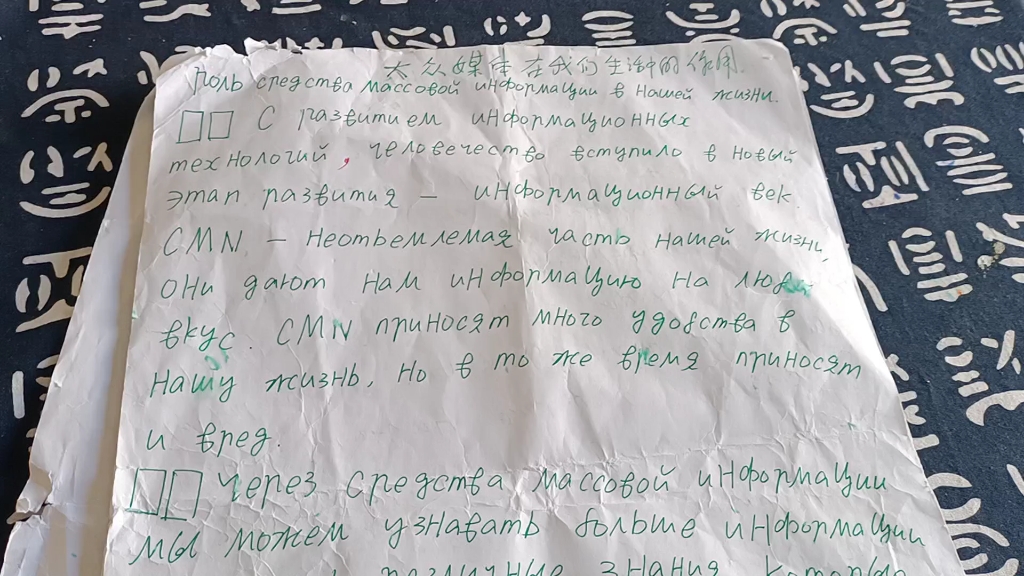 大众媒体在我们生活中的作用.
Роль средства массовой информации в нашей жизни.
С развитием информационных
технологий, человечество вступило в новый
этап развития — информационный век.
СМN — неотьемлемая часть нашей жизни,
они дают нам информацию на любой
вкус. СМN приносят много удобства в
нашу жизнь, но в то же время приносят
и вред.
Через средства массовой информации
мы можем узнавать больше информации
различные знания, которые